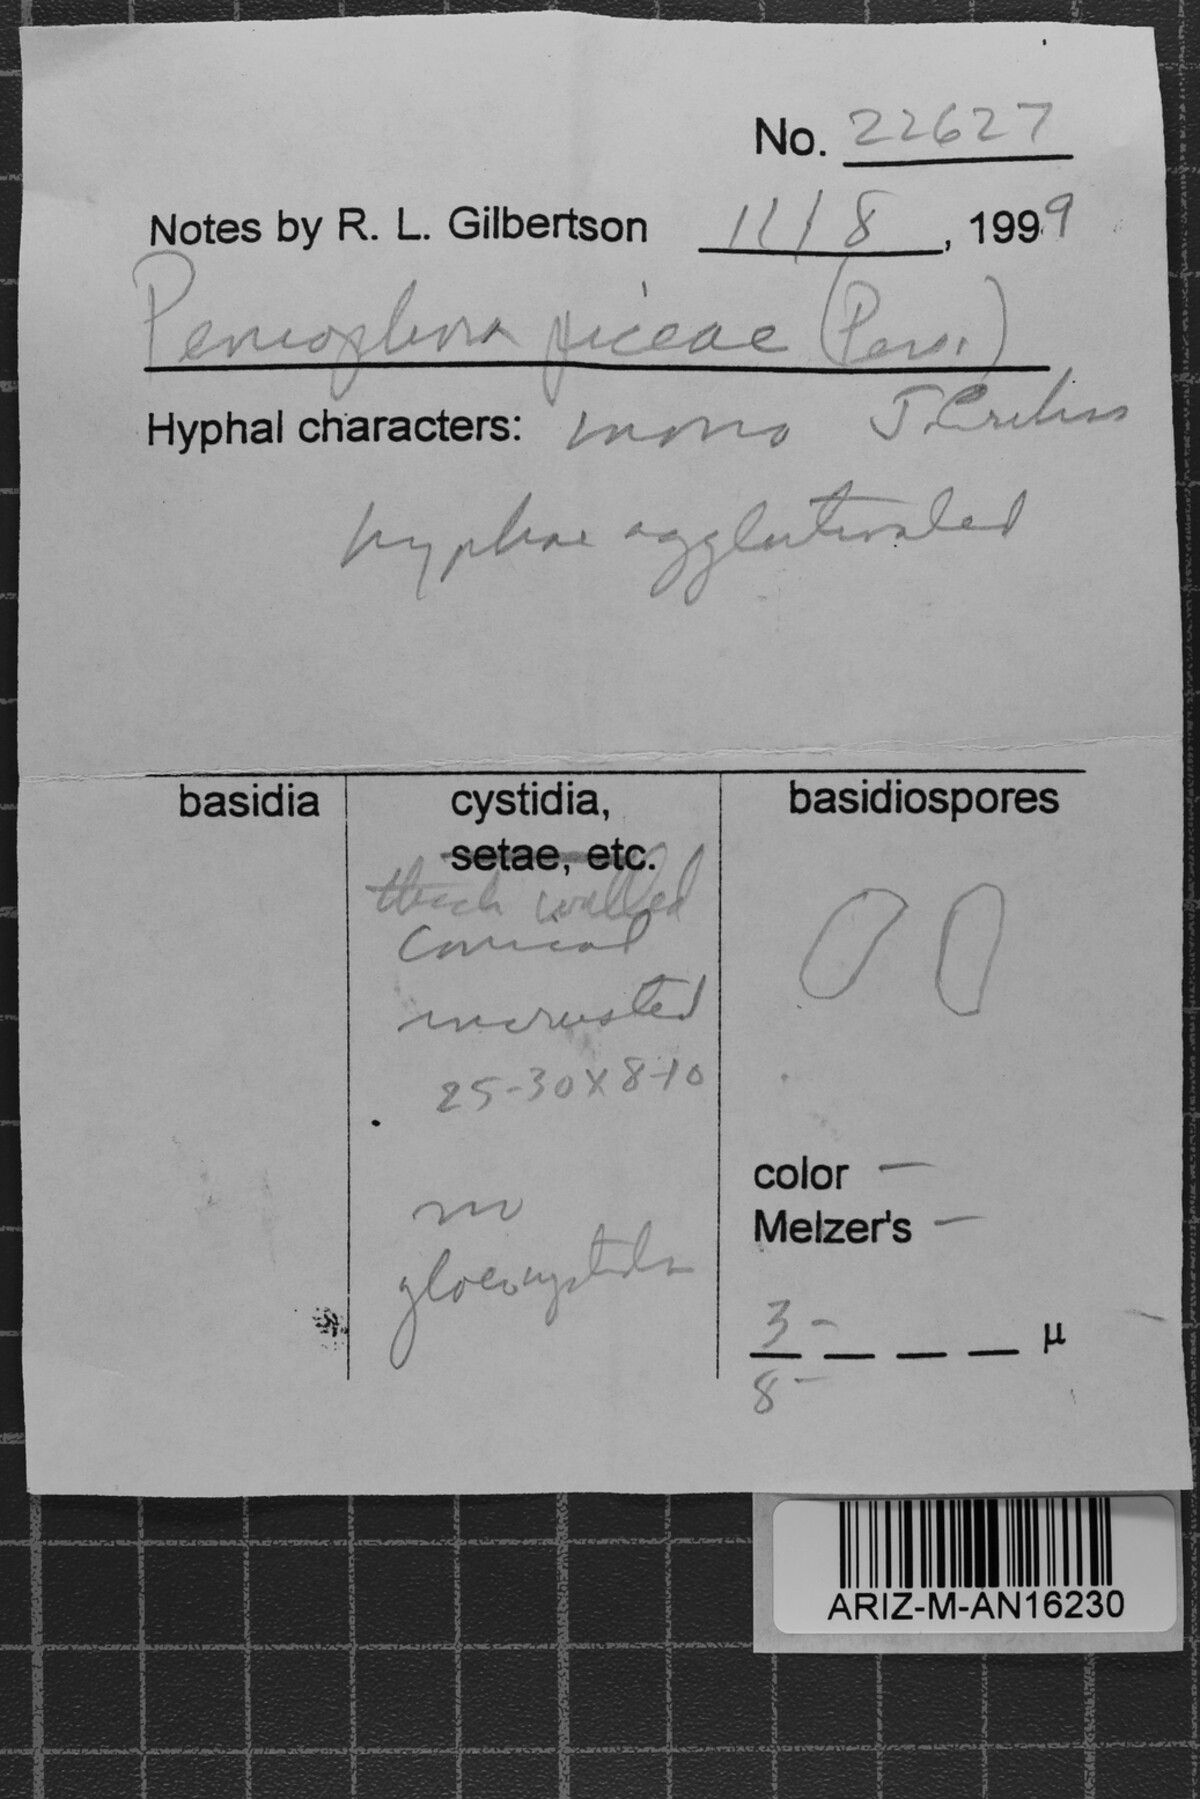 No. 22627
Notes by R. L. Gilbertson 11/8, 1999
Peniophora piceae (Pers.)
J. Erikss
Hyphal characters: mono
hyphae agglutinated
basidia
cystidia,
setae, etc.
thick walled
conical
incrusted
25-30 X 8-10
no
gloeocystidia
basidiospores
color —
Melzer's —
3 -
8 -
µ
ARIZ-M-AN16230